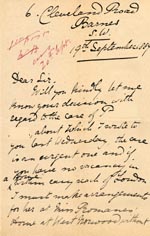 6. Cleveland Road
Barnes
S.W.
19th September 189
Dear Sir.
Will you kindly let me
know your decision with
regard to the case of
about which I wrote to
you last Wednesday. The case
is an urgent one and if
you have no vacancy
within easy reach of London
I must make arrangements
for her at Miss
Home at West Norwood without